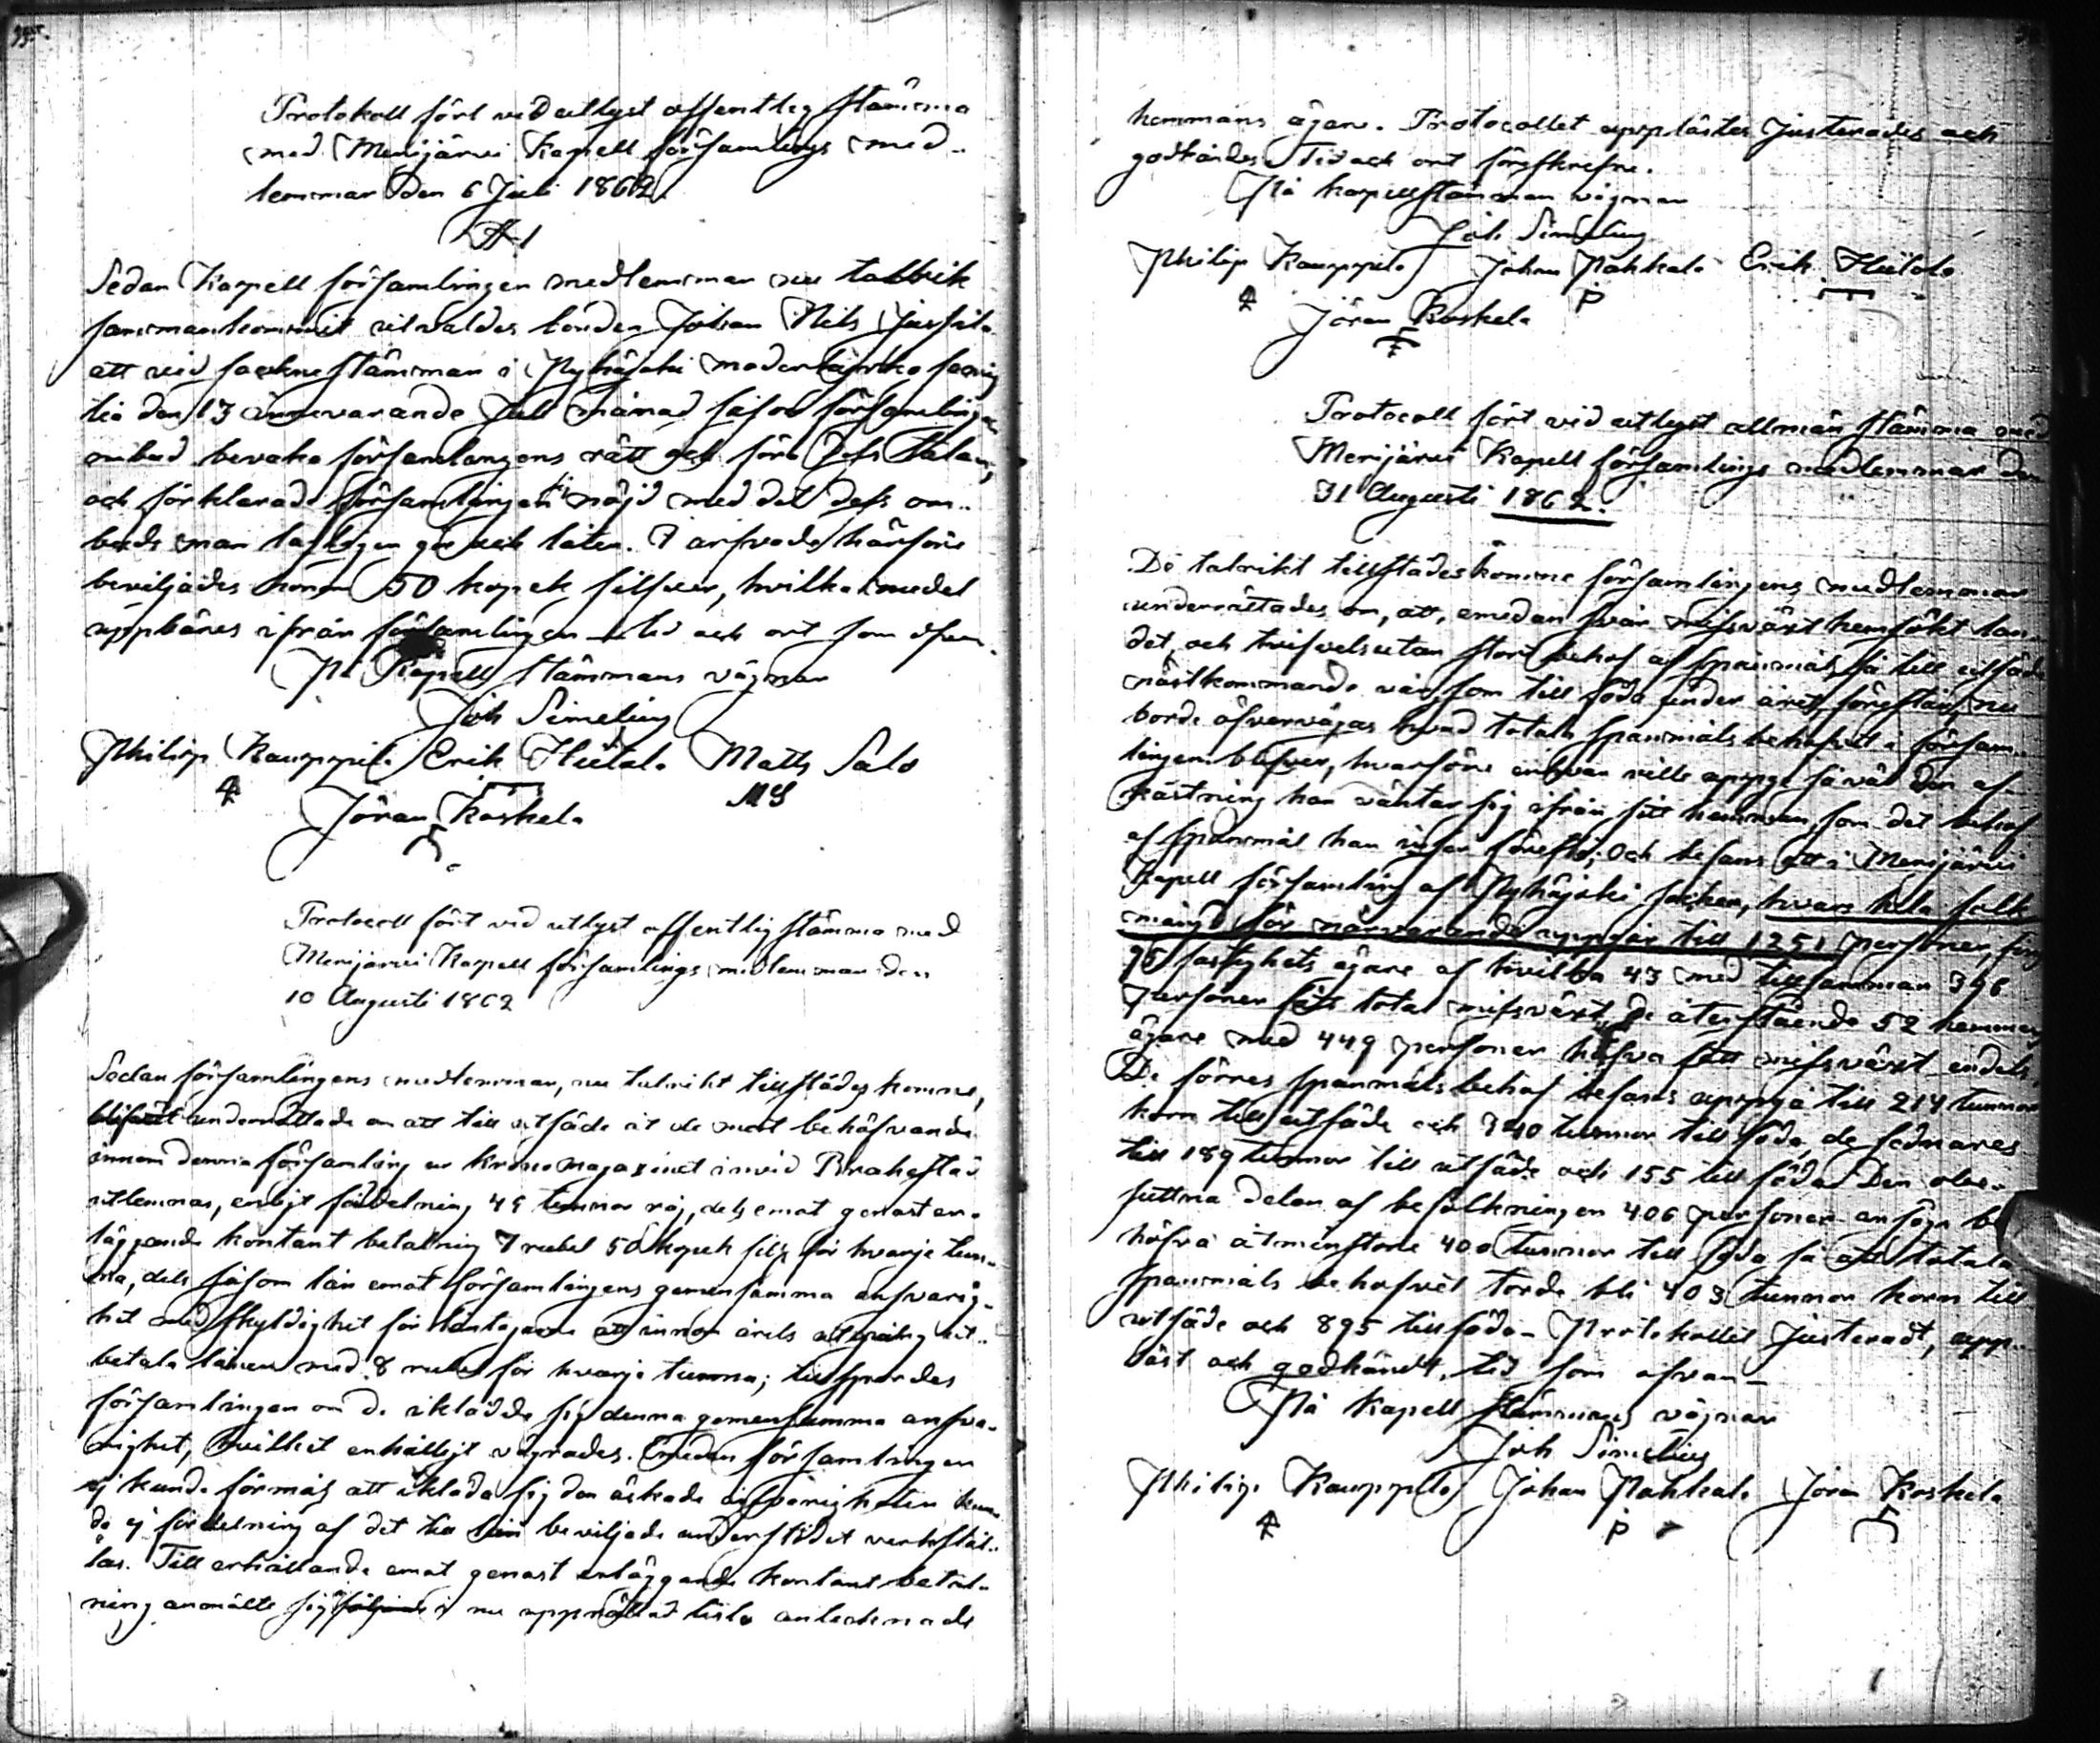 Protokoll fört vid utlyst offentlig stämma
med Merijärvi Kapell församlings med-
lemmar den 6 Juli 1862.
Sedan Kapell församlingen medlemmar nu talrik
sammankommit utvaldes bonden Johan Nils
att vid sockne stämman i Pyhäjoki moderkyrko
den 13 innevarande Juli månad såsom församlingen
ombud bevaka församlingens rätt och föra dess talan,
och förklarade församlingen sig nöjd med det dess om-
budsman lagligen gör och låter. I arfvode härföre
beviljades honom 50 kopek silfver, hvilka medel
uppbäres ifrån församlingen tid och ort som ofvan.
På Kapell stämmans vägnar
Joh Simelius
Philip Kauppila Erik Hietala Matts Salo
MS
Jöran Koskela
Protocoll fört vid utlyst offentlig stämma med
Merijärvi Kapell församlings medlemmar den
10 Augusti 1862
Sedan församlingens medlemmar, nu talrikt tillstädes komne,
blifvit underrättade om att till utsäde åt de mest behöfvande
innom denna församling ur krono magazinet invid Brahestad
utlemnas, enligt fördelning 49 tunnor råg, dels emot genast er-
läggande kontant betalning 7 rubel 50 kopek silf för hvarje tun-
na, dels såsom lån emot församlingens gemensamma ansvarig-
het med skyldighet för låntagarne att innom årets utgång åter-
betala lånen med 8 rubel för hvarje tunna; tillspordes
församlingen om de iklädde sig denna gemensamma ansva-
righet, hvilket enhälligt vägrades. Emedan församlingen
ej kunde förmås att ikläda sig den äskade ansvarigheten kun-
de ej fördelning af det till lån beviljade understödet verkstäl-
las. Till erhållande emot genast erläggande kontant betal-
ning anmälte sig följande i nu upprättad lista antecknade
hemmans ägare. Protocollet upplästes justerades och
godkändes. Tid och ort förskrefne.
På kapellstämman vägnar
Joh Simelius
Philip Kauppila Johan Pahkala Erik Hietala
Jöran Koskela
Protocoll fört vid utlyst allmän stämma med
Merijärvi Kapell församlings medlemmar den
31 Augusti 1862.
De talrikt tillstädeskomne församlingens medlemmar
underrättades om, att, emedan svår missväxt hemsökt lan-
det, och tvifvelsutan stort behof af spanmål så till utsäde
nästkommande vår, som till föda under året, förestår, nu
borde öfvervägas hvad totala spanmåls behofvet i försam-
lingen blifver, hvarföre enhvar ville uppge såväl den af-
kastning han väntar sig ifrån sitt hemman, som det behof
af spanmål han inser förestå; Och befans att i Merijärvi
Kapell församling af Pyhäjoki socken, hvars hela folk
mängd för närvarande uppgår till 1251 personer, fins
95 fastighets ägare af hvilka 43 med tillsamman 396
personer fått total missväxt, de återstående 52 hemmans
ägare med 449 personer hafva fått missväxt endels.
De förres spanmåls behof befans uppgå till 214 tunnor
korn till utsäde och 340 tunnor till föda, de sednares
till 189 tunnor till utsäde och 155 till föda. Den obe-
suttna delen af befolkningen 406 personer ansågs be
höfva åtminstone 400 tunnor till föda så att totala
spanmåls behofvet torde bli 403 tunnor korn till
utsäde och 895 till föda. Protokollet Justeradt, upp-
läst och godkändt, tid som ofvan
På Kapell stämmans vägnar
Joh Simelius
Philip Kauppila Johan Pahkala Jöran Koskela